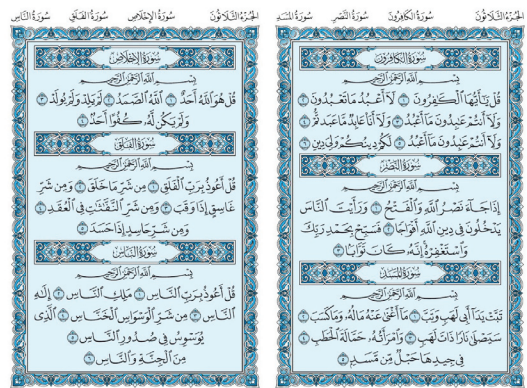 الجزء الثلاثون سورة الكافرون سورة النصر سورة المسد
سورة الكافرون
بسم الله الرحمن الرحيم
قُلْ يَٰٓأَيُّهَا ٱلْكَٰفِرُونَ ١ لَآ أَعْبُدُ مَا تَعْبُدُونَ ٢
وَلَآ أَنتُمْ عَٰبِدُونَ مَآ أَعْبُدُ ٣ وَلَآ أَنَا۠ عَابِدٌ مَّا عَبَدتُّمْ ٤
وَلَآ أَنتُمْ عَٰبِدُونَ مَآ أَعْبُدُ ٥ لَكُمْ دِينُكُمْ وَلِىَ دِينِ ٦
سورة النصر
بسم الله الرحمن الرحيم
إِذَا جَآءَ نَصْرُ ٱللَّهِ وَٱلْفَتْحُ ١ وَرَأَيْتَ ٱلنَّاسَ
يَدْخُلُونَ فِى دِينِ ٱللَّهِ أَفْوَاجًا ٢ فَسَبِّحْ بِحَمْدِ رَبِّكَ
وَٱسْتَغْفِرْهُ إِنَّهُۥ كَانَ تَوَّابًۢا ٣
سورة المسد
بسم الله الرحمن الرحيم
تَبَّتْ يَدَآ أَبِى لَهَبٍ وَتَبَّ ١ مَآ أَغْنَىٰ عَنْهُ مَالُهُۥ وَمَا كَسَبَ ٢
سَيَصْلَىٰ نَارًا ذَاتَ لَهَبٍ ٣ وَٱمْرَأَتُهُۥ حَمَّالَةَ ٱلْحَطَبِ ٤
فِى جِيدِهَا حَبْلٌ مِّن مَّسَدٍۭ ٥
الجزء الثلاثون سورة الإخلاص سورة الفلق سورة الناس
سورة الإخلاص
بسم الله الرحمن الرحيم
قُلْ هُوَ ٱللَّهُ أَحَدٌ ١ ٱللَّهُ ٱلصَّمَدُ ٢ لَمْ يَلِدْ وَلَمْ يُولَدْ ٣
وَلَمْ يَكُن لَّهُۥ كُفُوًا أَحَدٌۢ ٤
سورة الفلق
بسم الله الرحمن الرحيم
قُلْ أَعُوذُ بِرَبِّ ٱلْفَلَقِ ١ مِن شَرِّ مَا خَلَقَ ٢ وَمِن شَرِّ
غَاسِقٍ إِذَا وَقَبَ ٣ وَمِن شَرِّ ٱلنَّفَّٰثَٰتِ فِى ٱلْعُقَدِ ٤
وَمِن شَرِّ حَاسِدٍ إِذَا حَسَدَ ٥
سورة الناس
بسم الله الرحمن الرحيم
قُلْ أَعُوذُ بِرَبِّ ٱلنَّاسِ ١ مَلِكِ ٱلنَّاسِ ٢ إِلَٰهِ
ٱلنَّاسِ ٣ مِن شَرِّ ٱلْوَسْوَاسِ ٱلْخَنَّاسِ ٤ ٱلَّذِى
يُوَسْوِسُ فِى صُدُورِ ٱلنَّاسِ ٥
مِنَ ٱلْجِنَّةِ وَٱلنَّاسِ ٦